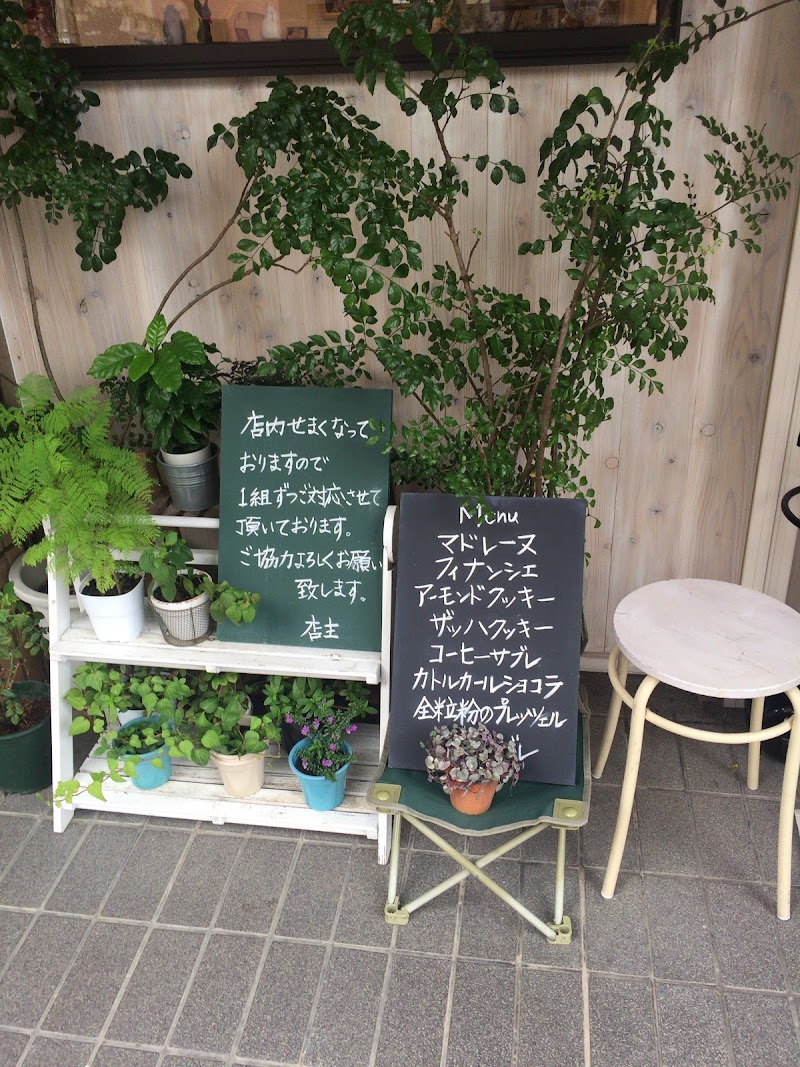 店内せまくなって
おりますので
1組ずつご対応させて
頂いております。
ご協力よろしくお願い
致します。
店主
Menu
マドレーヌ
フィナンシェ
アーモンドクッキー
ザッハクッキー
コーヒーサブレ
カトルカールショコラ
全粒粉のプレッツェル